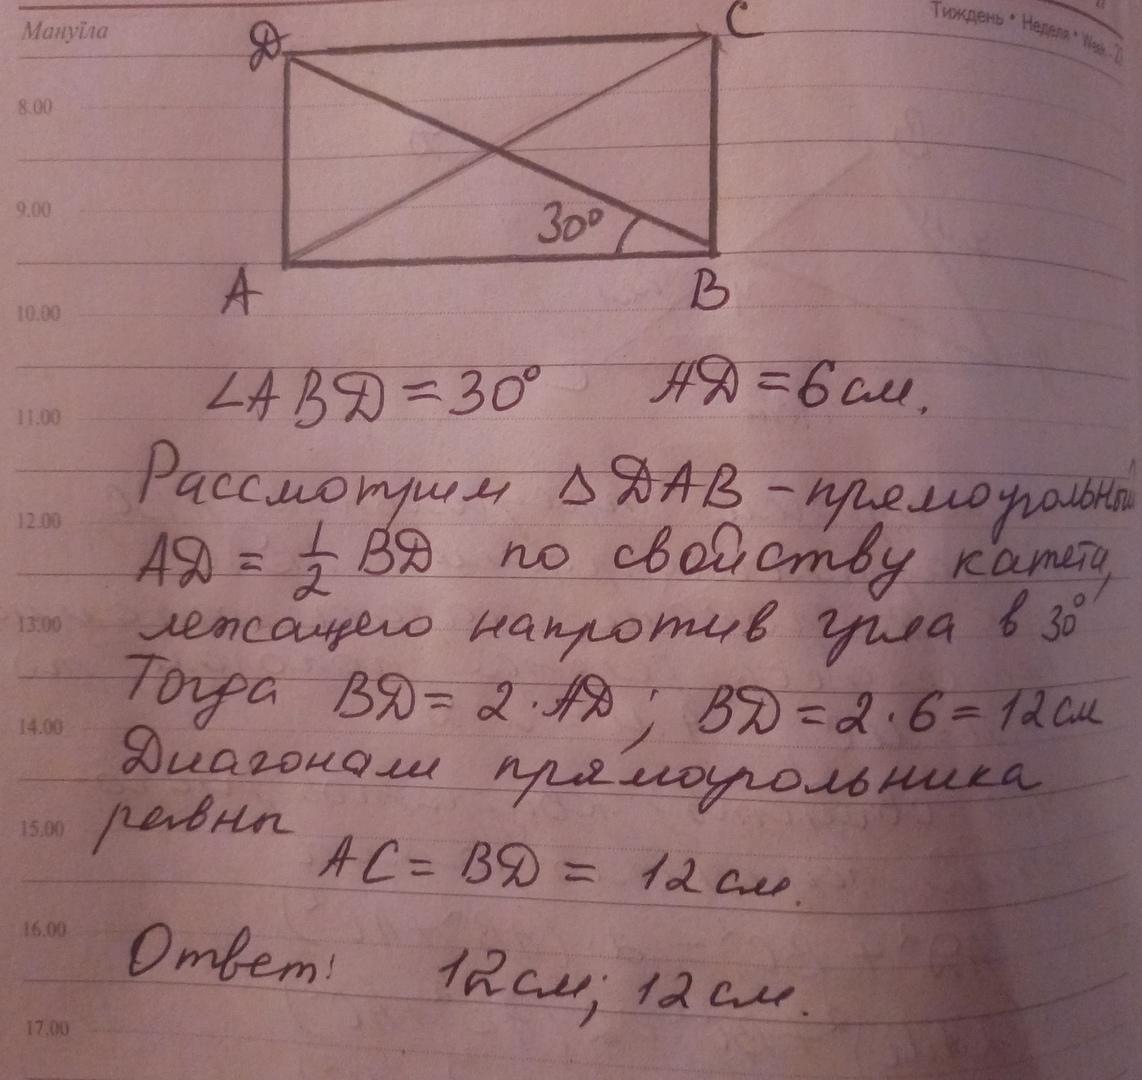 Мануїла
Тиждень • Неделя • Week
D
C
8.00
9.00
30°
A
B
10.00
∠ABD = 30° AD = 6 см.
11.00
Рассмотрим △ DAB – прямоугольный
12.00
AD = 1/2 BD по свойству катета,
лежащего напротив угла в 30°
13.00
Тогда BD = 2 · AD; BD = 2 · 6 = 12 см
14.00
Диагонали прямоугольника
равны
15.00
AC = BD = 12 см.
16.00
Ответ: 12 см; 12 см.
17.00